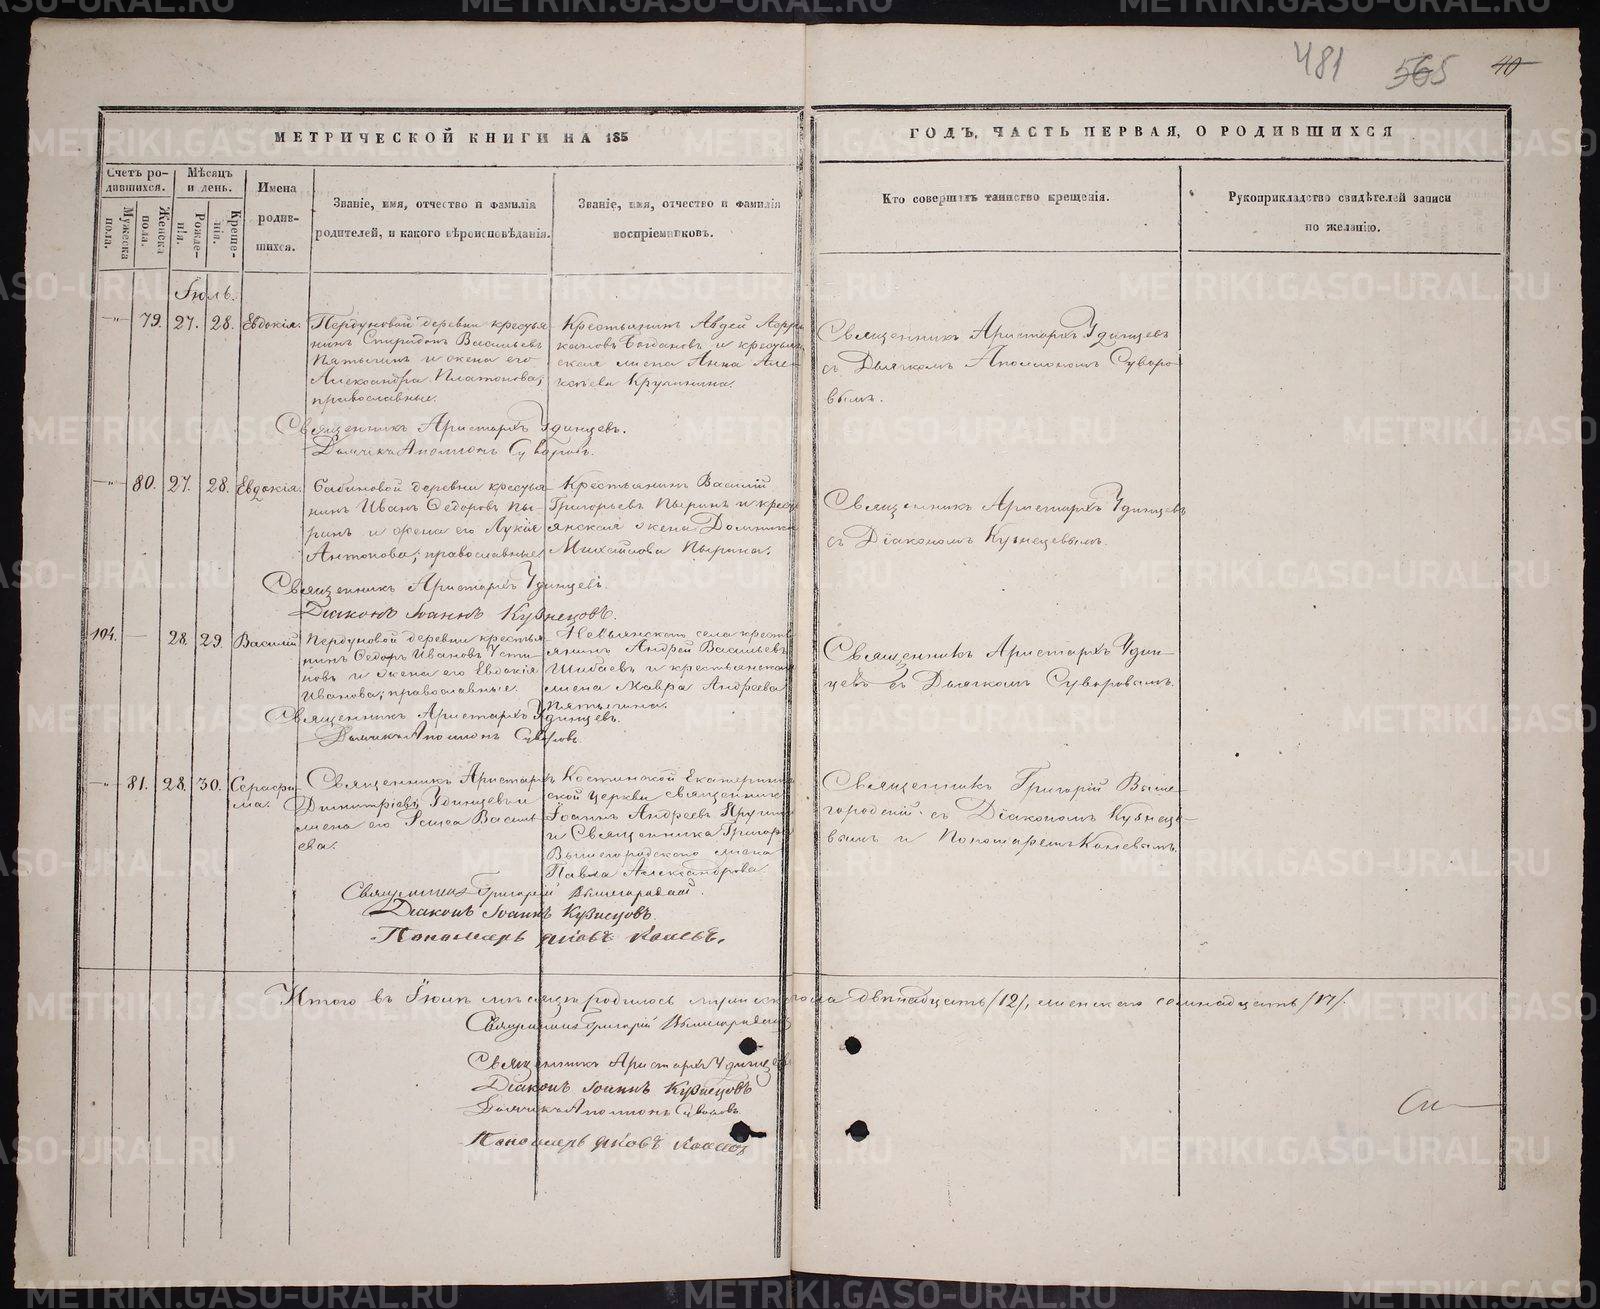 481 565 40
МЕТРИЧЕСКОЙ КНИГИ НА 185
ГОДЪ, ЧАСТЬ ПЕРВАЯ, О РОДИВШИХСЯ
Счетъ родившихся.
Мужеска пола.
Женска пола.
Мѣсяцъ и день.
Рожденія.
Крещенія.
Имена родившихся.
Званіе, имя, отчество и фамилія
родителей, и какого вѣроисповѣданія.
Званіе, имя, отчество и фамилія
воспріемниковъ.
Кто совершалъ таинство крещенія.
Рукоприкладство свидѣтелей записи
по желанію.
Іюль.
79. 27. 28. Евдокія.
Пердуновой деревни крестья-
нинъ Спиридонъ Васильевъ
Пятыгинъ и жена его
Александра Платонова,
православные.
Крестьянинъ Авдей
Богдановъ и крестьян-
ская жена Анна Але-
Крупинина.
Священникъ Аристархъ Удинцевъ
съ Дьячкомъ Аполлономъ Суворо-
вымъ.
Священникъ Аристархъ Удинцевъ.
Дьячекъ Аполлонъ Суворовъ.
80. 27. 28. Евдокія.
Сабиновой деревни крестья-
нинъ Иванъ Федоровъ Пы-
ринъ и жена его Лукія
Антонова, православные
Крестьянинъ Василій
Григорьевъ Пыринъ и крес
янская жена Домника
Михайлова Пырина.
Священникъ Аристархъ Удинцевъ
съ Діакономъ Кузнецовымъ.
Священникъ Аристархъ Удинцевъ.
Діаконъ Іоаннъ Кузнецовъ.
104. 28. 29. Василий
Пердуновой деревни крестья
нинъ Федоръ Ивановъ Усти-
новъ и жена его Евдокія
Иванова, православные.
Невьянскаго села крест
янинъ Андрей Васильевъ
Шибаевъ и крестьянская
жена Мавра Андреева
Пятыгина.
Священникъ Аристархъ Удин-
цевъ съ Дьячкомъ Суворовымъ.
Священникъ Аристархъ Удинцевъ.
Дьячекъ Аполлонъ Суворовъ.
81. 28. 30. Серафи-
ма.
Священникъ Аристархъ
Димитріевъ Удинцевъ и
жена его Василь-
ева.
Костинской Екатеринин
ской церкви священникъ
Іоаннъ Андреевъ
и Священника Григорі
Вышегородскаго жена
Павла Александрова.
Священникъ Григорій Выше-
городскій съ Діакономъ Кузнецо-
вымъ и Пономаремъ Коневымъ.
Священникъ Григорій Вышегородскій.
Діаконъ Іоаннъ Кузнецовъ.
Пономарь Яковъ Коневъ.
Итого въ Іюлѣ мѣсяцѣ родилось мужескаго двѣнадцать /12/, женскаго семнадцать /17/.
Священникъ Григорій Вышегородскій
Священникъ Аристархъ Удинцевъ
Діаконъ Іоаннъ Кузнецовъ
Дьячекъ Аполлонъ Суворовъ
Пономарь Яковъ Коневъ
METRIKI.GASO-URAL.RU